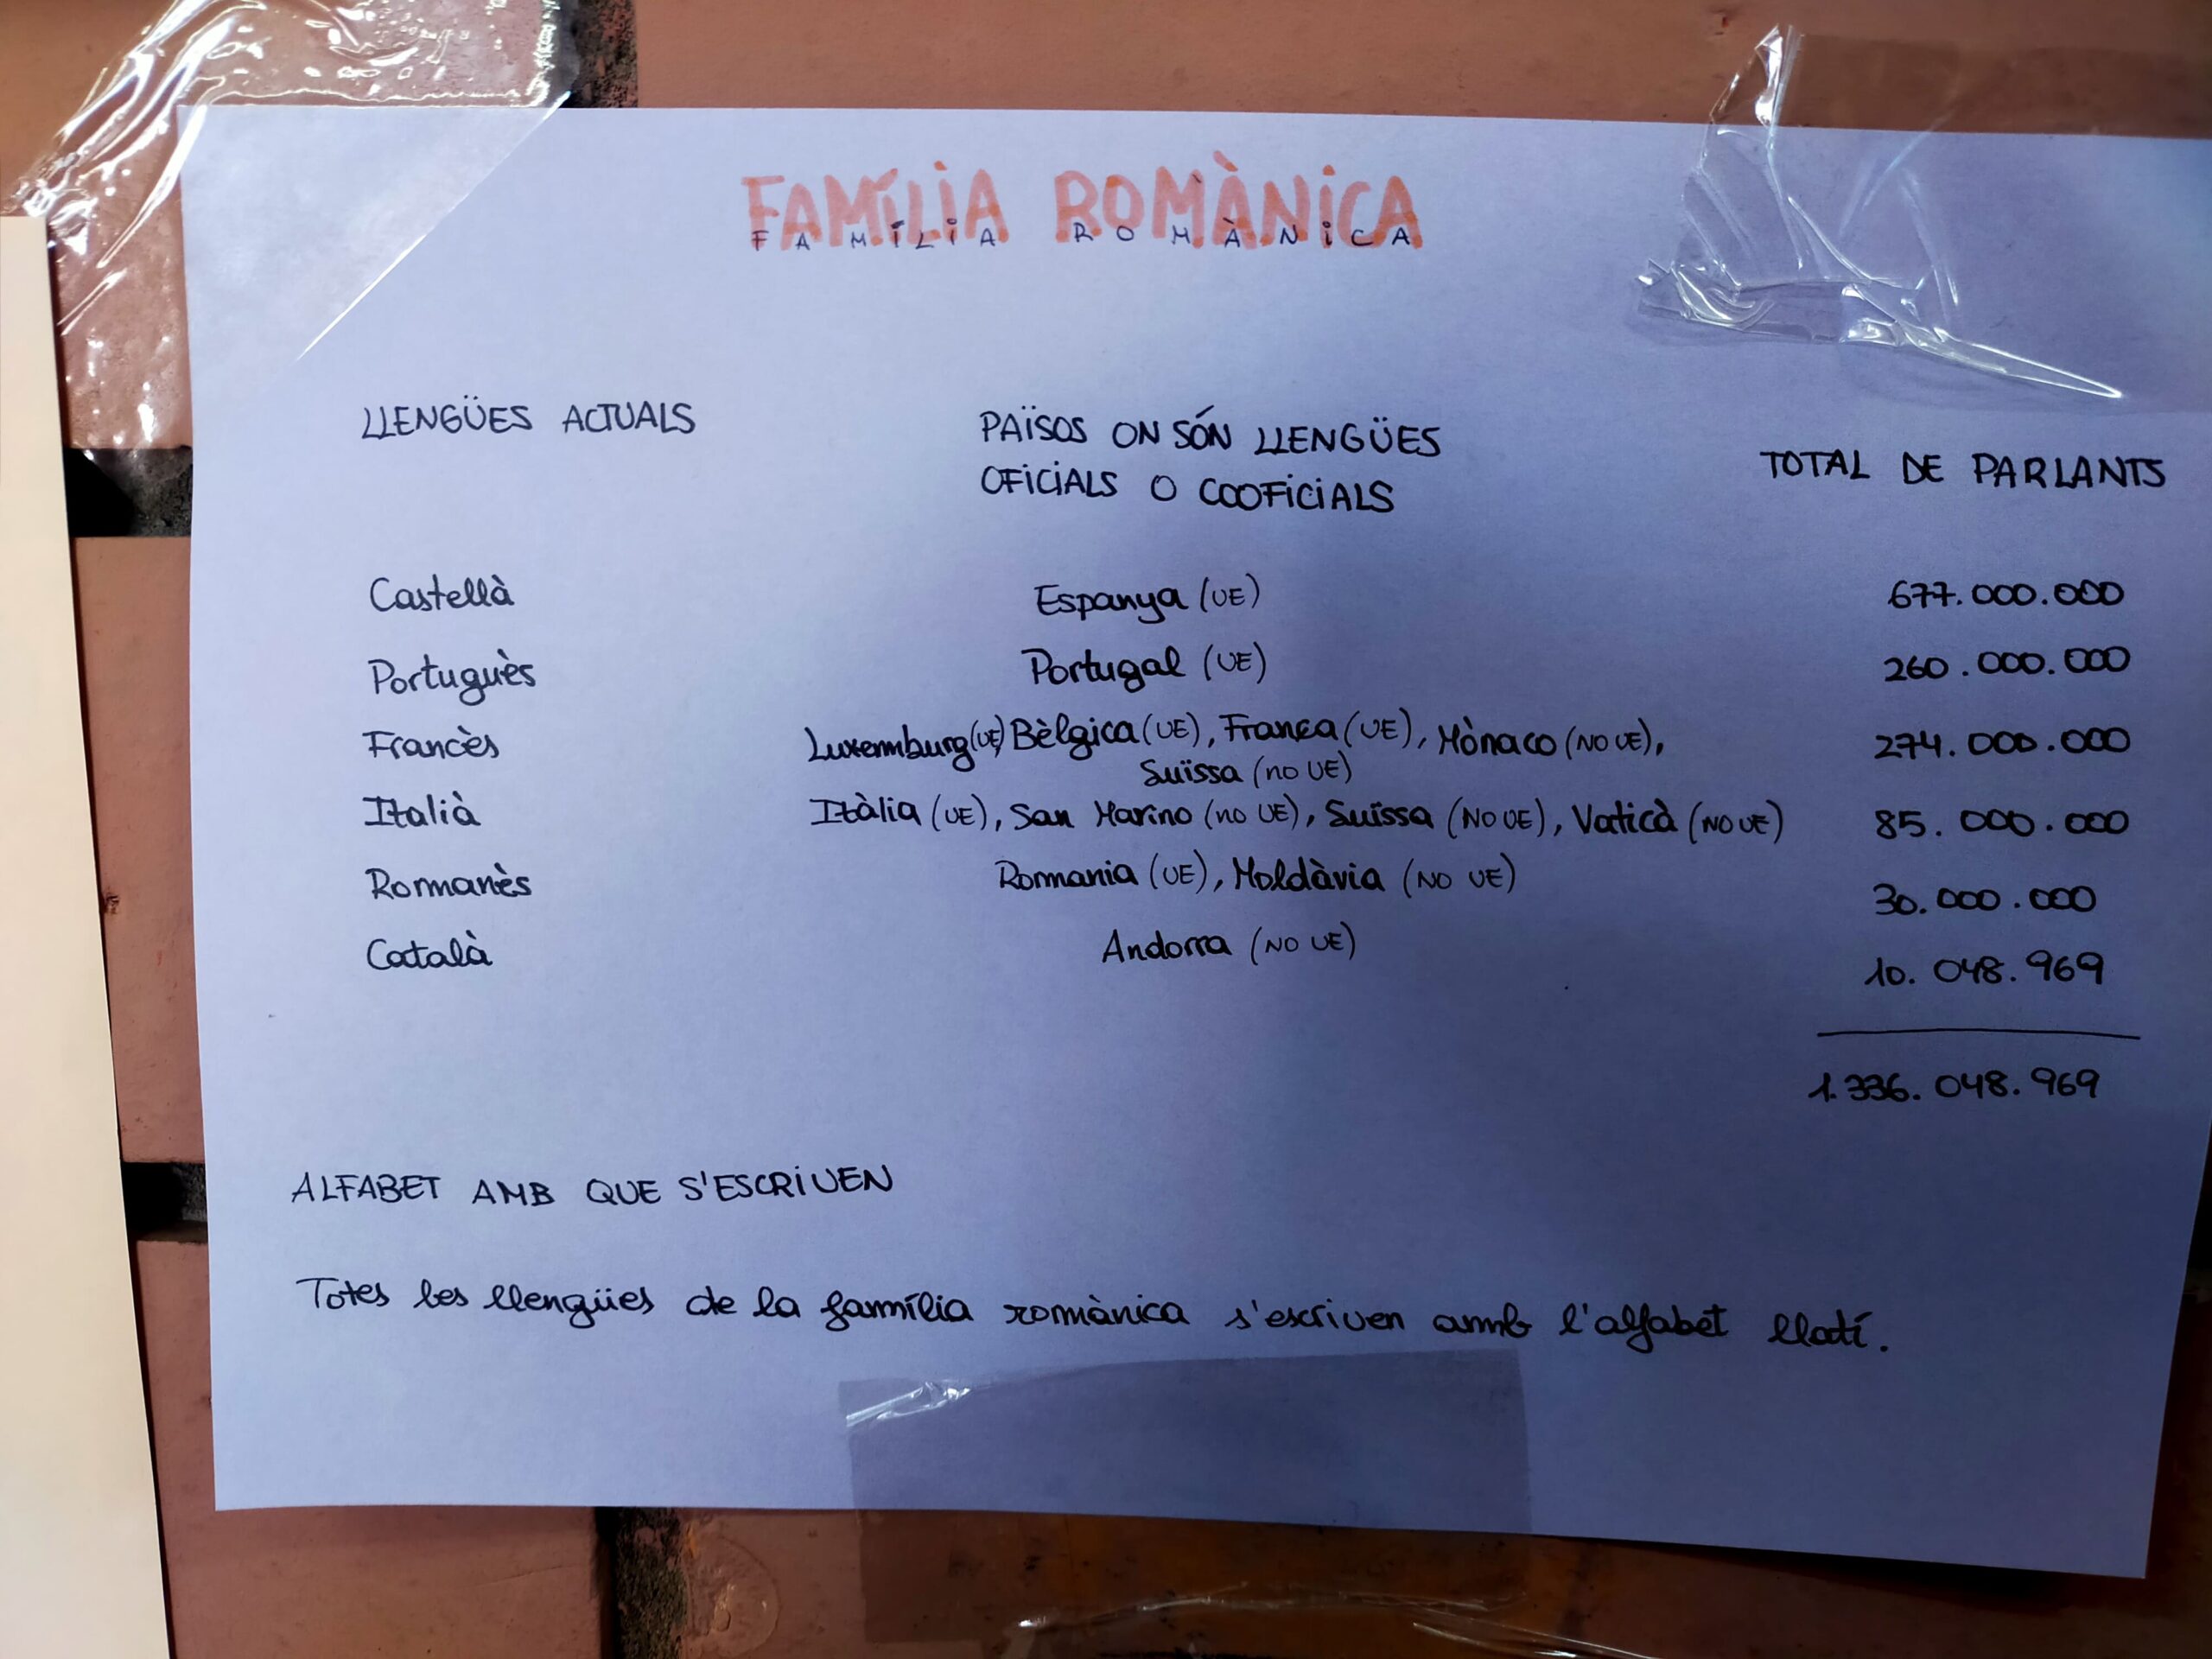 FAMÍLIA ROMÀNICA
FAMÍLIA ROMÀNICA
LLENGÜES ACTUALS
PAÏSOS ON SÓN LLENGÜES
OFICIALS O COOFICIALS
TOTAL DE PARLANTS
Castellà Espanya (UE) 677.000.000
Portuguès Portugal (UE) 260.000.000
Francès Luxemburg (UE) Bèlgica (UE), França (UE), Mònaco (NO UE), 274.000.000
Suïssa (no UE)
Italià Itàlia (UE), San Marino (no UE), Suïssa (NO UE), Vaticà (NO UE) 85.000.000
Romanès Romania (UE), Moldàvia (NO UE) 30.000.000
Català Andorra (NO UE) 10.048.969
1.336.048.969
ALFABET AMB QUE S'ESCRIUEN
Totes les llengües de la família romànica s'escriuen amb l'alfabet llatí.